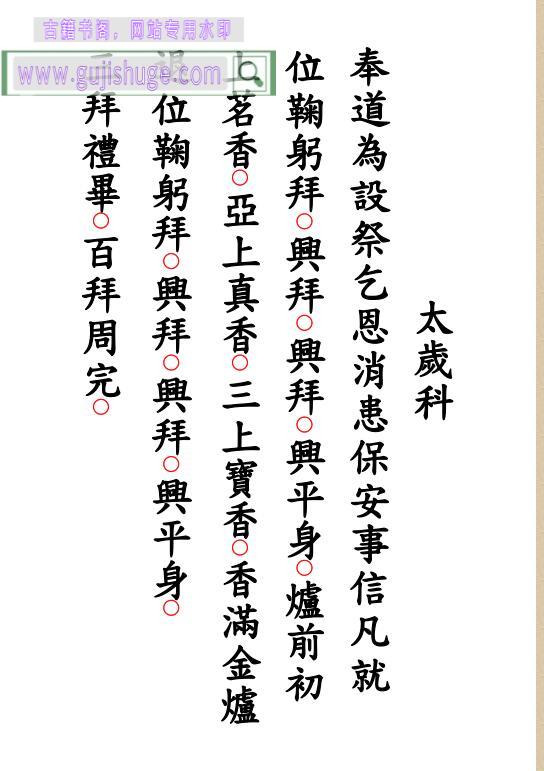 古籍书阁，网站专用水印
www.gujishuge.com
太歲科
奉道為設祭乞恩消患保安事信凡就
位鞠躬拜○興拜○興拜○興平身○爐前初
上茗香○亞上真香○三上寶香○香滿金爐
退位鞠躬拜○興拜○興拜○興平身○
三拜禮畢○百拜周完○